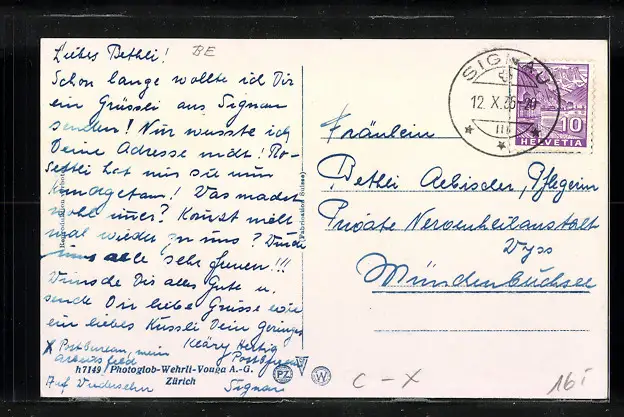 Liebes Bethli!
BE
Schon lange wollte ich Dir
ein Grüssli aus Signau
senden! Nur wusste ich
Deine Adresse nicht! Ro-
settli hat mir sie nun
kundgetan! Was machst
wohl immer? Kommst
mal wieder zu uns?
uns alle sehr freuen!!!
Wünsche Dir alles Gute u.
sende Dir liebe Grüsse wie
ein liebes Küssli Dein
Kläry Hertig
X Postbureau, mein
Arbeitsfeld
Postbureau
Auf Wiedersehn
Signau
h7149 Photoglob-Wehrli-Vouga A.-G.
Zürich
PZ
W
(Fabrication Suisse)
SIGNAU
12.X.36-20
10
HELVETIA
Fräulein
Bethli Aebischer, Pflegerin
Private Nervenheilanstalt
Wyss
Münchenbuchsee
C - X